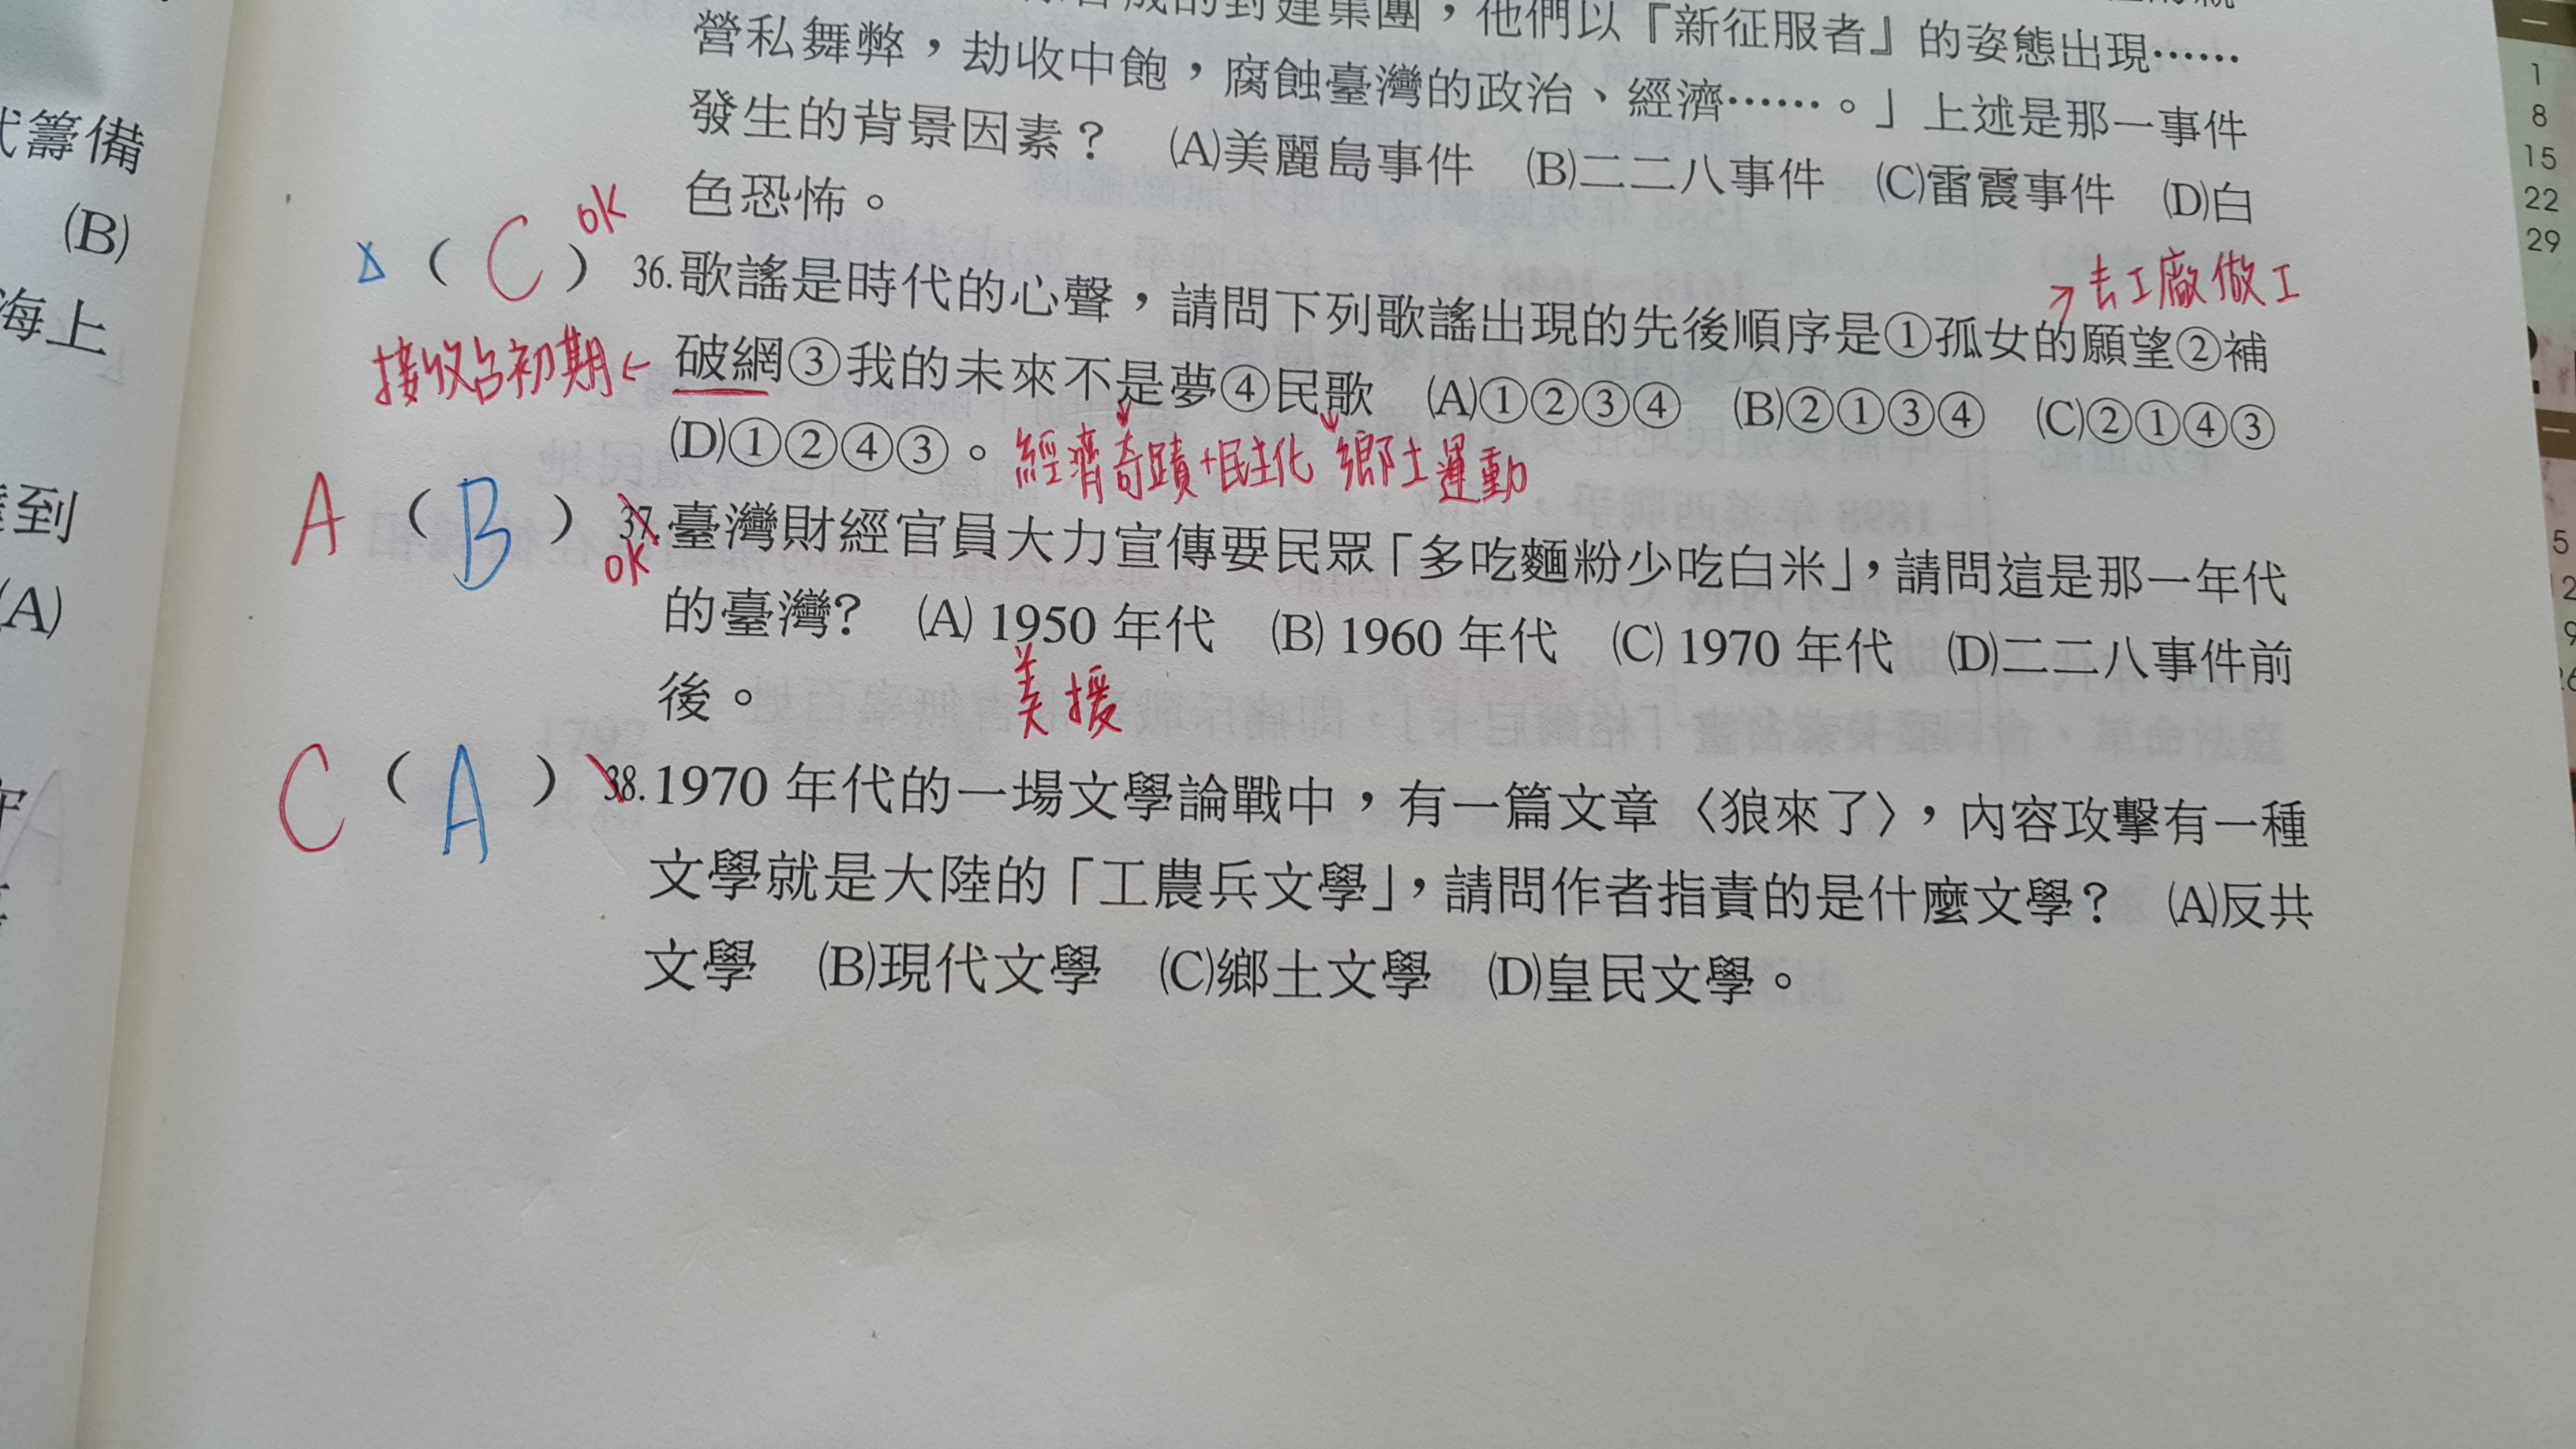 的封建集團，他們以『新征服者』的姿態出現……
營私舞弊，劫收中飽，腐蝕臺灣的政治、經濟……。」上述是那一事件
發生的背景因素？ (A)美麗島事件 (B)二二八事件 (C)雷震事件 (D)白
色恐怖。
OK
→去工廠做工
( C ) 36.歌謠是時代的心聲，請問下列歌謠出現的先後順序是①孤女的願望②補
接收台初期←
破網③我的未來不是夢④民歌 (A)①②③④ (B)②①③④ (C)②①④③
(D)①②④③。 經濟奇蹟+民主化 鄉土運動
A ( B ) 37.臺灣財經官員大力宣傳要民眾「多吃麵粉少吃白米」，請問這是那一年代
OK
的臺灣? (A) 1950 年代 (B) 1960 年代 (C) 1970 年代 (D)二二八事件前
後。 美援
C ( A ) 38.1970 年代的一場文學論戰中，有一篇文章〈狼來了〉，內容攻擊有一種
文學就是大陸的「工農兵文學」，請問作者指責的是什麼文學？ (A)反共
文學 (B)現代文學 (C)鄉土文學 (D)皇民文學。
籌備
(B)
海上
到
(A)
一
1
8
15
22
29
一
5